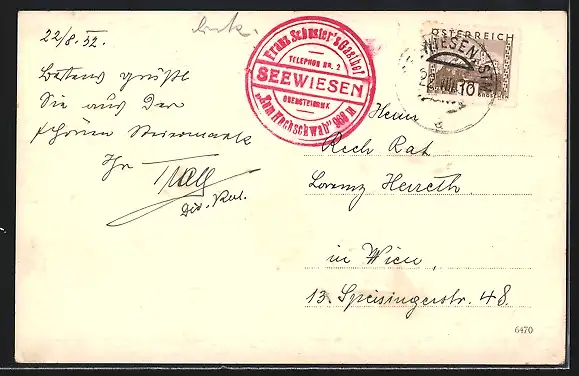 22/8. 32.
Bestens grüßt
Sie aus der
schönen Steiermark
Ihr
Franz Schuster's Gasthof
TELEPHON NR. 2
SEEWIESEN
OBERSTEIERMARK
„Zum Hochschwab" 968 M
ÖSTERREICH
10
Herrn
Rech. Rat
Lorenz Herreth
in Wien,
13. Speisingerstr. 48.
6470